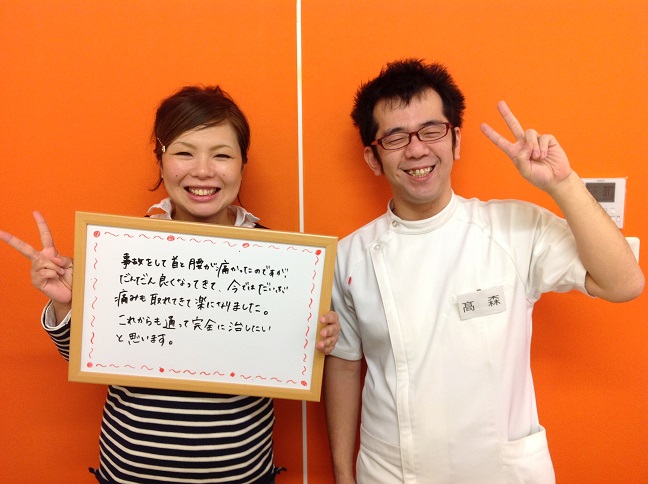 事故をして首と腰が痛かったのですが
だんだん良くなってきて、今ではだいぶ
痛みも取れてきて楽になりました。
これからも通って完全に治したい
と思います。
高森